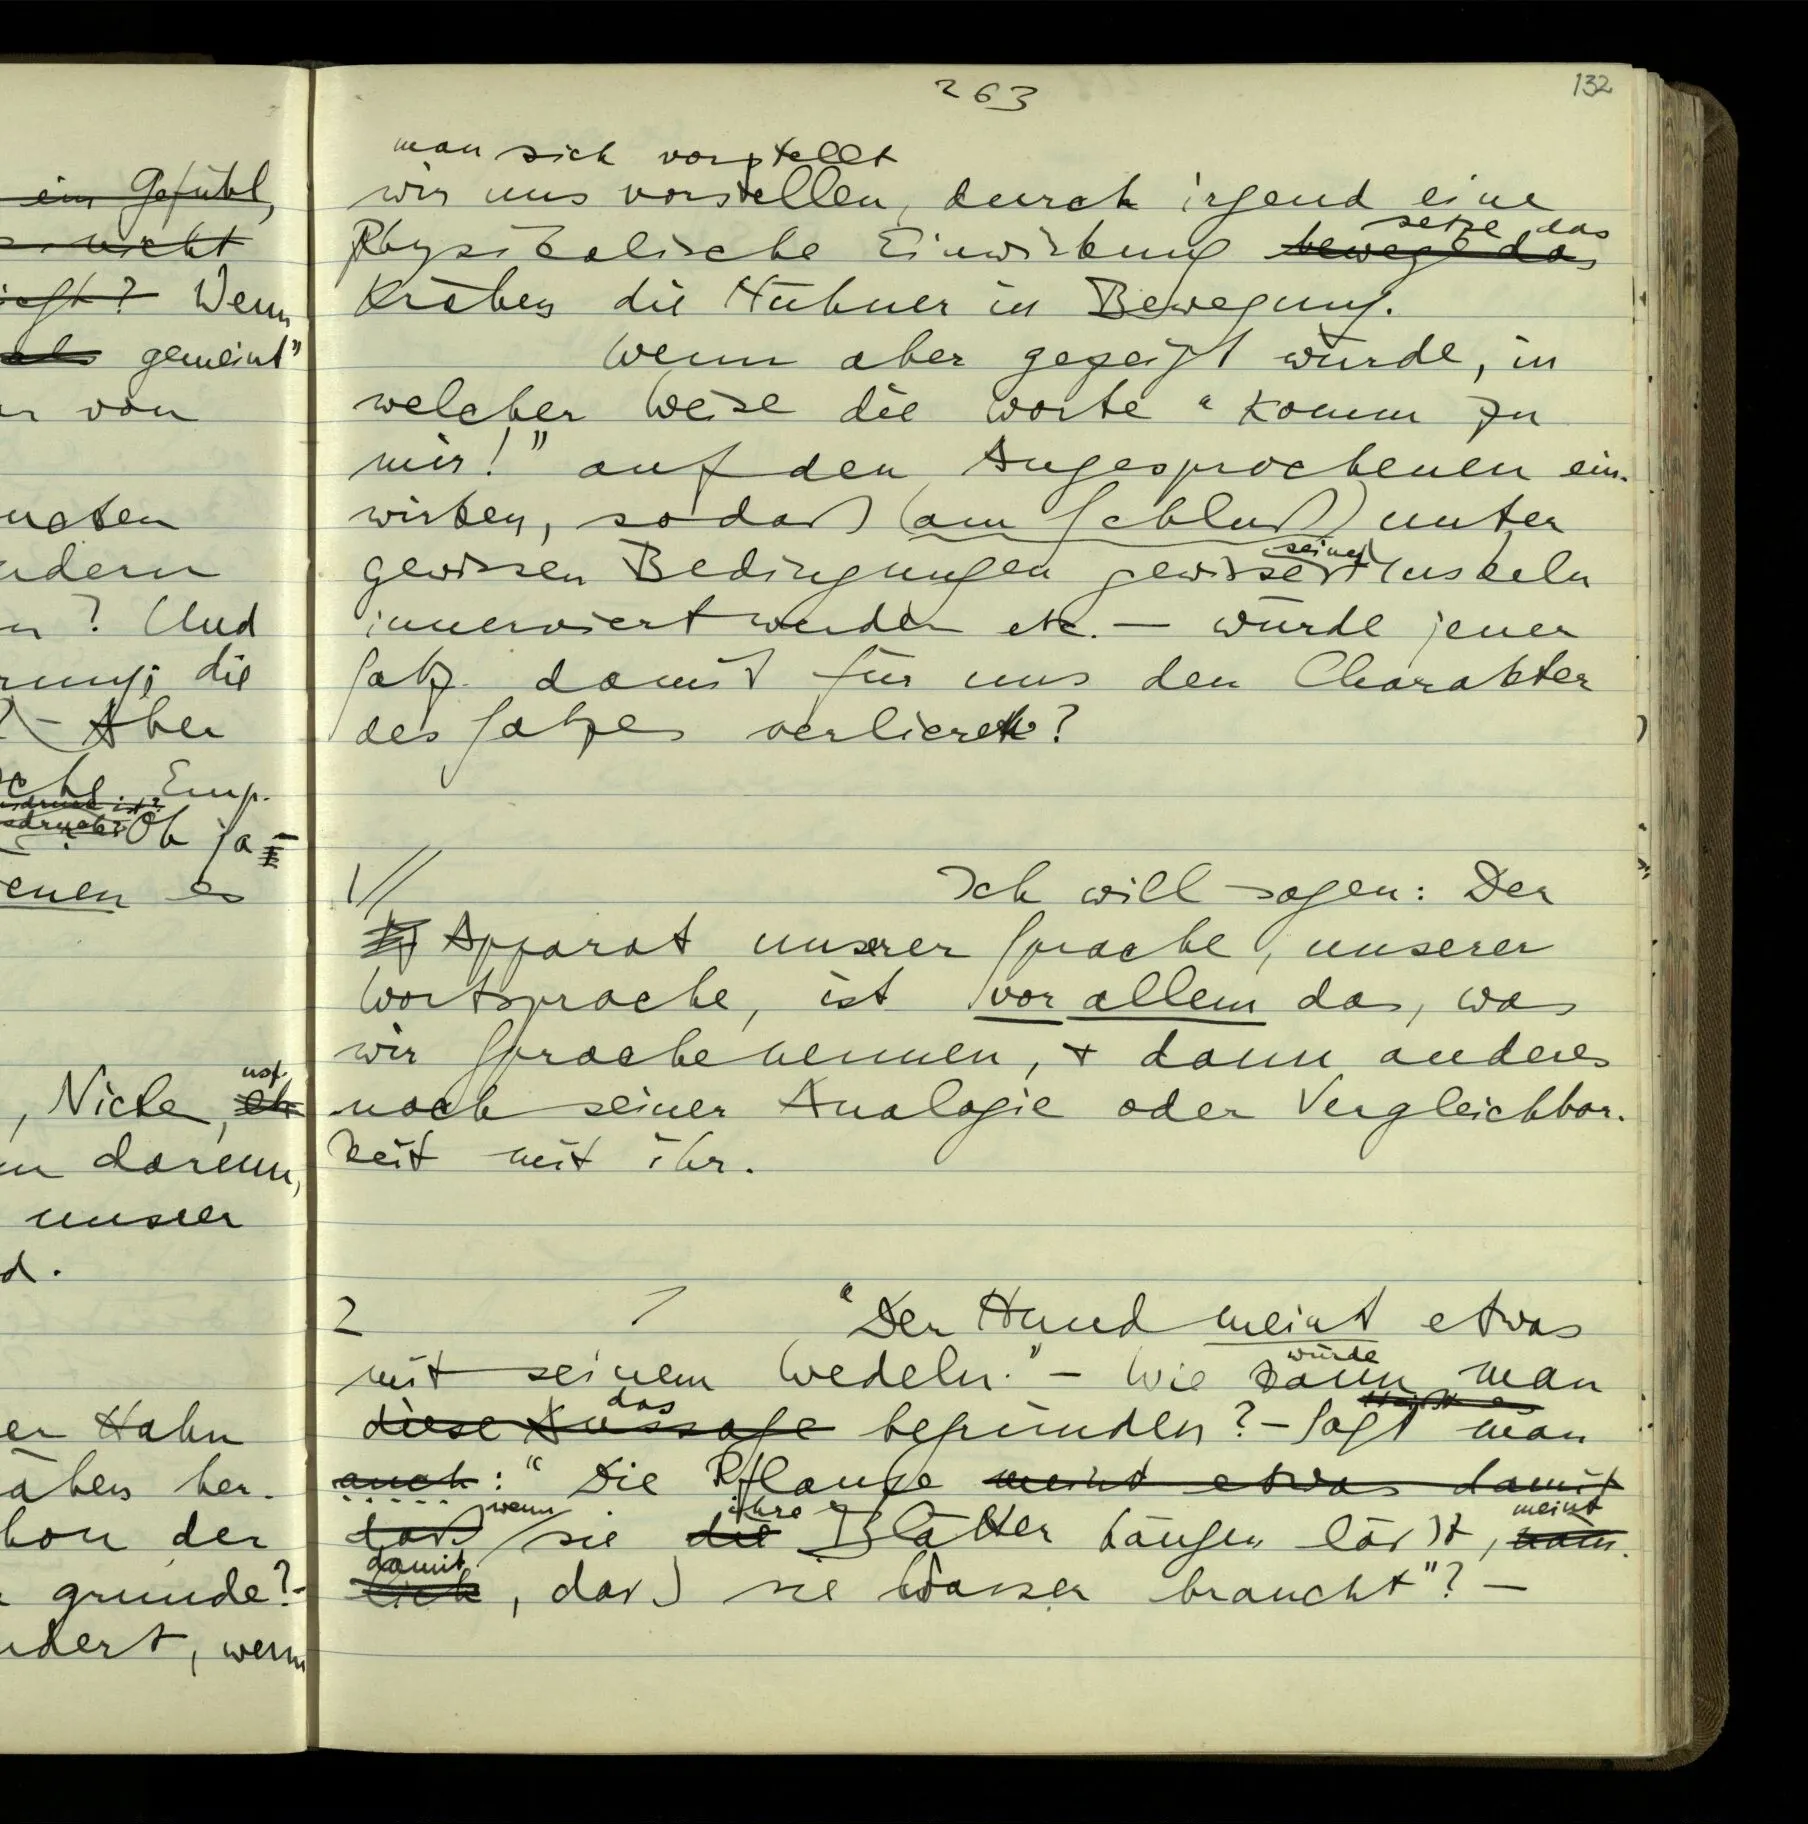 263
132
man sich vorstellt
wir uns vorstellen, durch irgend eine
setze das
Physikalische Einwirkung bewege das
Krähen die Hühner in Bewegung.
Wenn aber gezeigt würde, in
welcher Weise die Worte “Komm zu
mir!” auf den Angesprochenen ein-
wirken, sodaß (am Schluß) unter
seiner
gewissen Bedingungen gewisse Muskeln
innerviert werden etc. — würde jener
Satz damit für uns den Charakter
des Satzes verlieren?
1 //
Ich will sagen: Der
Apparat unserer Sprache, unserer
Wortsprache, ist vor allem das, was
wir Sprache nennen, + dann anderes
nach seiner Analogie oder Vergleichbar-
keit mit ihr.
2 / “Der Hund meint etwas
würde
mit seinem Wedeln.” – Wie kann man
das
diese Aussage begründen? – Sagt man
auch: “Die Pflanze meint etwas damit
wenn ihre meint
daß sie die Blätter hängen läßt, näm-
damit
lich, daß sie Wasser braucht”? —
ein Gefühl,
nicht
Wenn
gemeint”
von
ndern
? Und
die
– Aber
Emp-
Oh ja
enen es
usf.
, Nicken, etc
darum,
unserer
d.
er Hahn
ähen her-
hon der
grunde? –
ndert, wenn